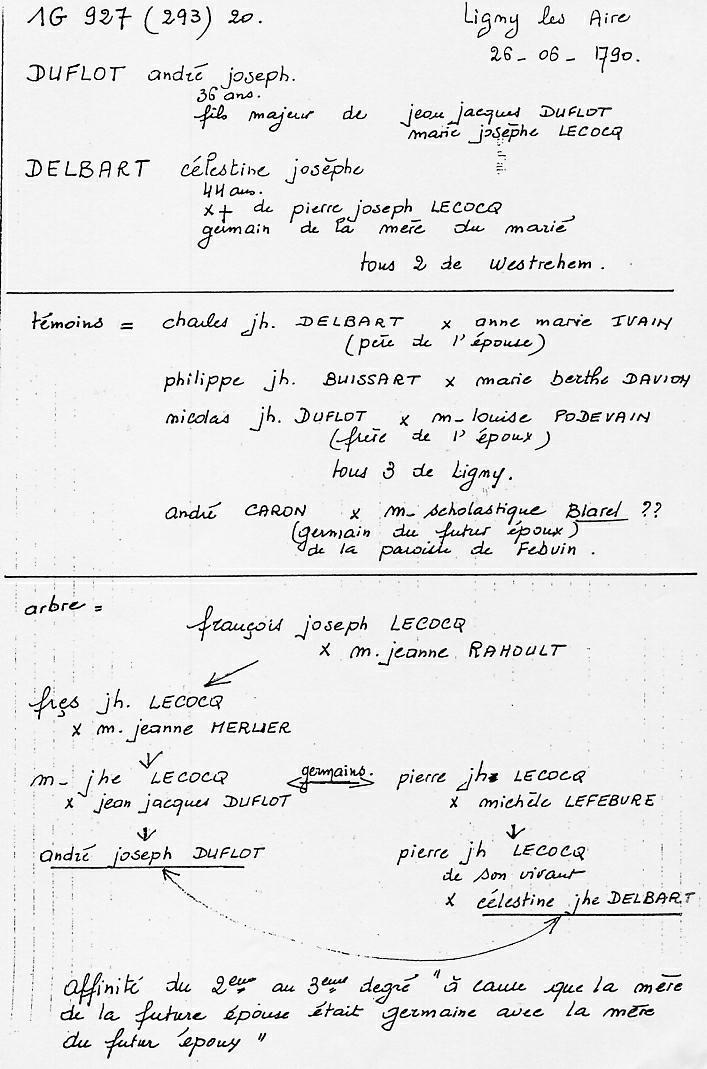 1G 927 (293) 20. Ligny les Aire
26-06-1790.
DUFLOT andré joseph.
36 ans.
fils majeur de jean jacques DUFLOT
marie josephe LECOCQ
DELBART célestine josephe
44 ans.
x+ de pierre joseph LECOCQ
germain de la mère du marié
tous 2 de Westrehem.
témoins = charles jh. DELBART x anne marie IVAIN
(père de l'épouse)
philippe jh. BUISSART x marie berthe DAVION
nicolas jh. DUFLOT x m-louise PODEVAIN
(frère de l'époux)
tous 3 de Ligny.
andré CARON x m- scholastique Blarel ??
(germain du futur époux)
de la paroisse de Febvin.
arbre =
françois joseph LECOCQ
x m.jeanne RAHOULT
frçs jh. LECOCQ
x m.jeanne MERLIER
m- jhe LECOCQ germains. pierre jh LECOCQ
x jean jacques DUFLOT x michèle LEFEBURE
andré joseph DUFLOT pierre jh LECOCQ
de son vivant
x célestine jhe DELBART
affinité du 2eme au 3eme degré "à cause que la mère
de la future épouse était germaine avec la mère
du futur époux"